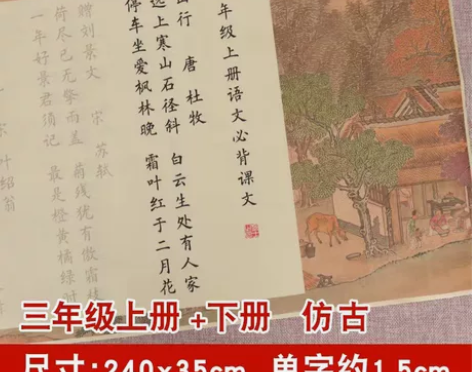 年级上册语文必背课文
山行 唐 杜牧
远上寒山石径斜 白云生处有人家
停车坐爱枫林晚 霜叶红于二月花
赠刘景文 宋 苏轼
荷尽已无擎雨盖 菊残犹有傲霜
一年好景君须记 最是橙黄橘绿时
叶绍翁
三年级上册+下册 仿古
尺寸:240x35cm 单字约1.5cm